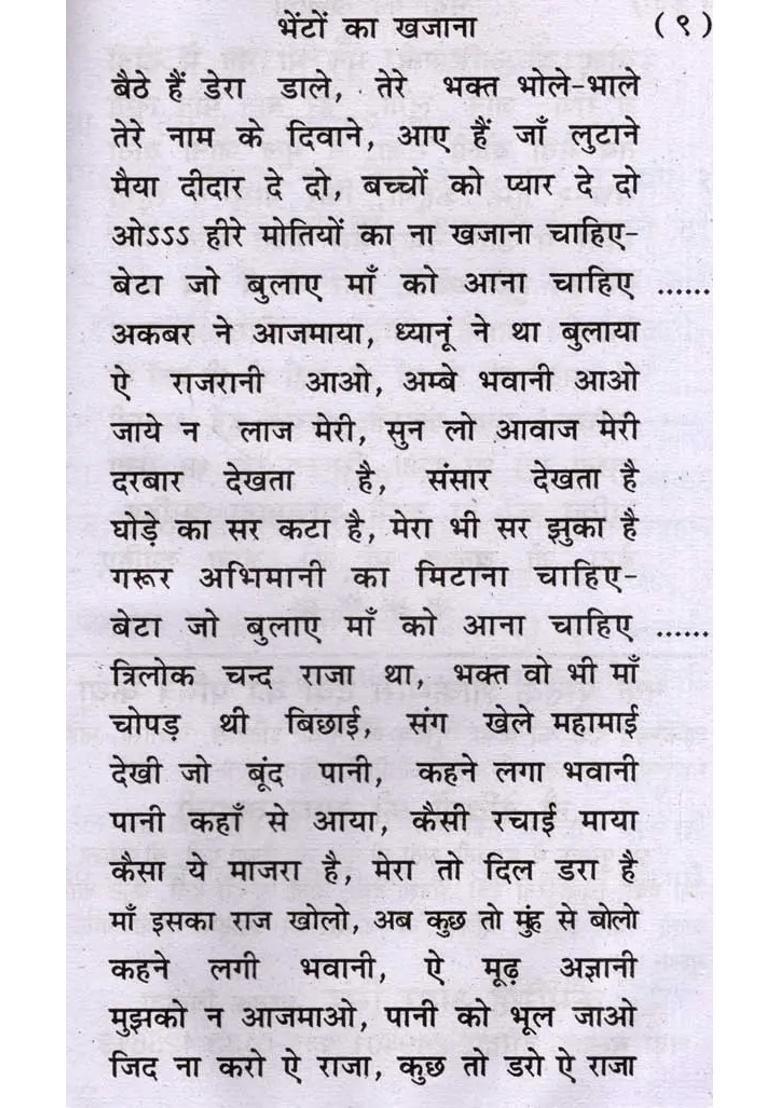 भेंटों का खजाना (९)
बैठे हैं डेरा डाले, तेरे भक्त भोले-भाले
तेरे नाम के दिवाने, आए हैं जाँ लुटाने
मैया दीदार दे दो, बच्चों को प्यार दे दो
ओऽऽऽ हीरे मोतियों का ना खजाना चाहिए-
बेटा जो बुलाए माँ को आना चाहिए ......
अकबर ने आजमाया, ध्यानूं ने था बुलाया
ऐ राजरानी आओ, अम्बे भवानी आओ
जाये न लाज मेरी, सुन लो आवाज मेरी
दरबार देखता है, संसार देखता है
घोड़े का सर कटा है, मेरा भी सर झुका है
गरूर अभिमानी का मिटाना चाहिए-
बेटा जो बुलाए माँ को आना चाहिए ......
त्रिलोक चन्द राजा था, भक्त वो भी माँ
चोपड़ थी बिछाई, संग खेले महामाई
देखी जो बूंद पानी, कहने लगा भवानी
पानी कहाँ से आया, कैसी रचाई माया
कैसा ये माजरा है, मेरा तो दिल डरा है
माँ इसका राज खोलो, अब कुछ तो मुंह से बोलो
कहने लगी भवानी, ऐ मूढ़ अज्ञानी
मुझको न आजमाओ, पानी को भूल जाओ
जिद ना करो ऐ राजा, कुछ तो डरो ऐ राजा